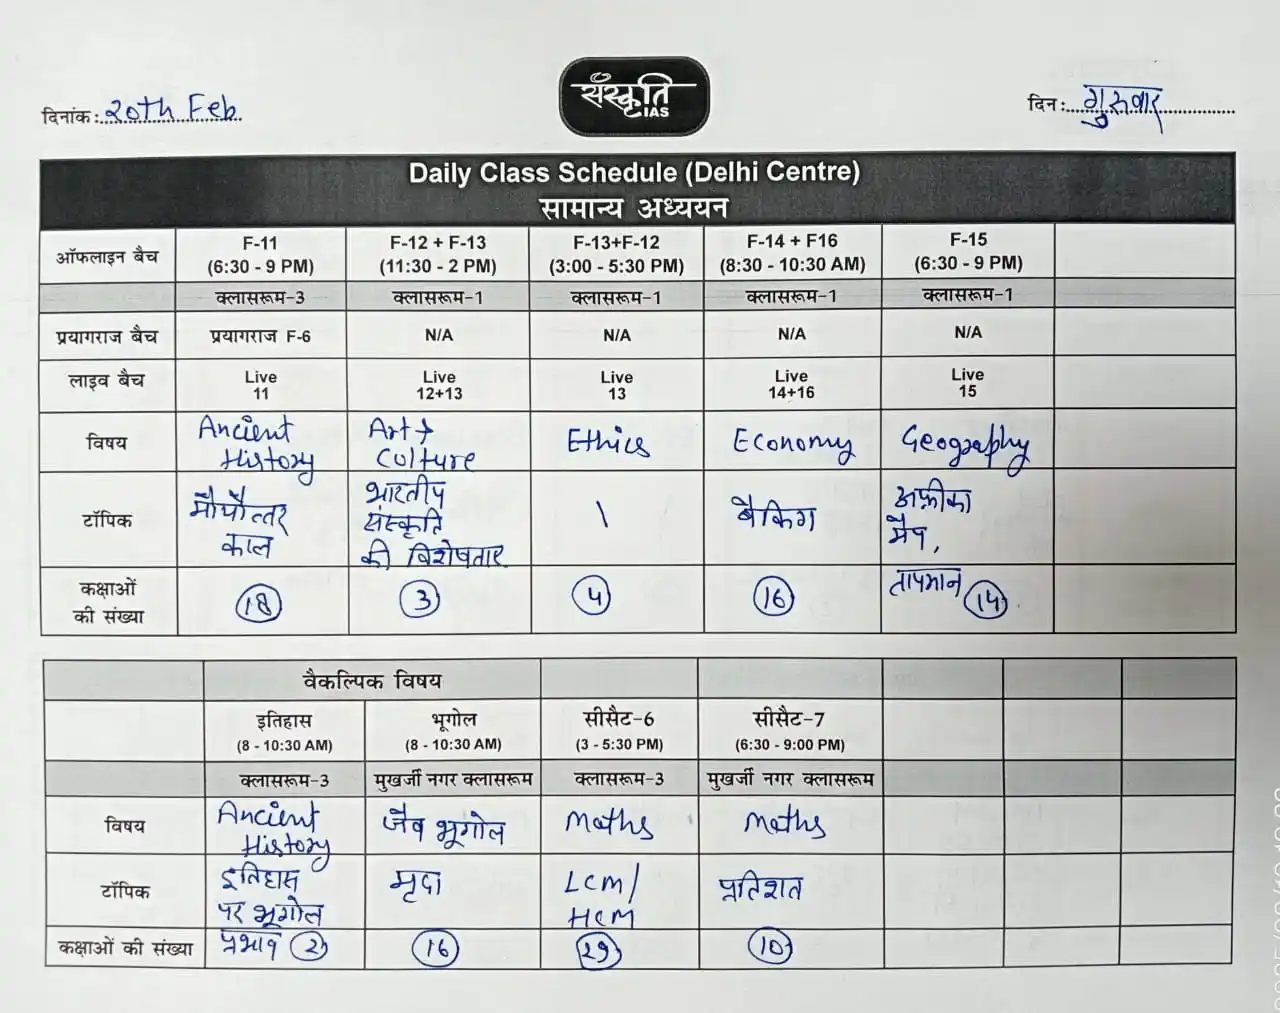 संस्कृति
IAS
दिनांक: 20th Feb
दिन: गुरुवार
Daily Class Schedule (Delhi Centre)
सामान्य अध्ययन
ऑफलाइन बैच F-11 F-12 + F-13 F-13+F-12 F-14 + F16 F-15
(6:30 - 9 PM) (11:30 - 2 PM) (3:00 - 5:30 PM) (8:30 - 10:30 AM) (6:30 - 9 PM)
क्लासरूम-3 क्लासरूम-1 क्लासरूम-1 क्लासरूम-1 क्लासरूम-1
प्रयागराज बैच प्रयागराज F-6 N/A N/A N/A N/A
लाइव बैच Live Live Live Live Live
11 12+13 13 14+16 15
विषय Ancient Art + Ethics Economy Geography
History Culture
टॉपिक मौर्योत्तर भारतीय \ बैंकिग अफ्रीका
काल संस्कृति मैप,
की विशेषताए तापमान
कक्षाओं
की संख्या 18 3 4 16 14
वैकल्पिक विषय
इतिहास भूगोल सीसैट-6 सीसैट-7
(8 - 10:30 AM) (8 - 10:30 AM) (3 - 5:30 PM) (6:30 - 9:00 PM)
क्लासरूम-3 मुखर्जी नगर क्लासरूम क्लासरूम-3 मुखर्जी नगर क्लासरूम
विषय Ancient जैव भूगोल Maths Maths
History
टॉपिक इतिहास मृदा LCM/ प्रतिशत
पर भूगोल HCM
प्रभाव
कक्षाओं की संख्या 2 16 29 10